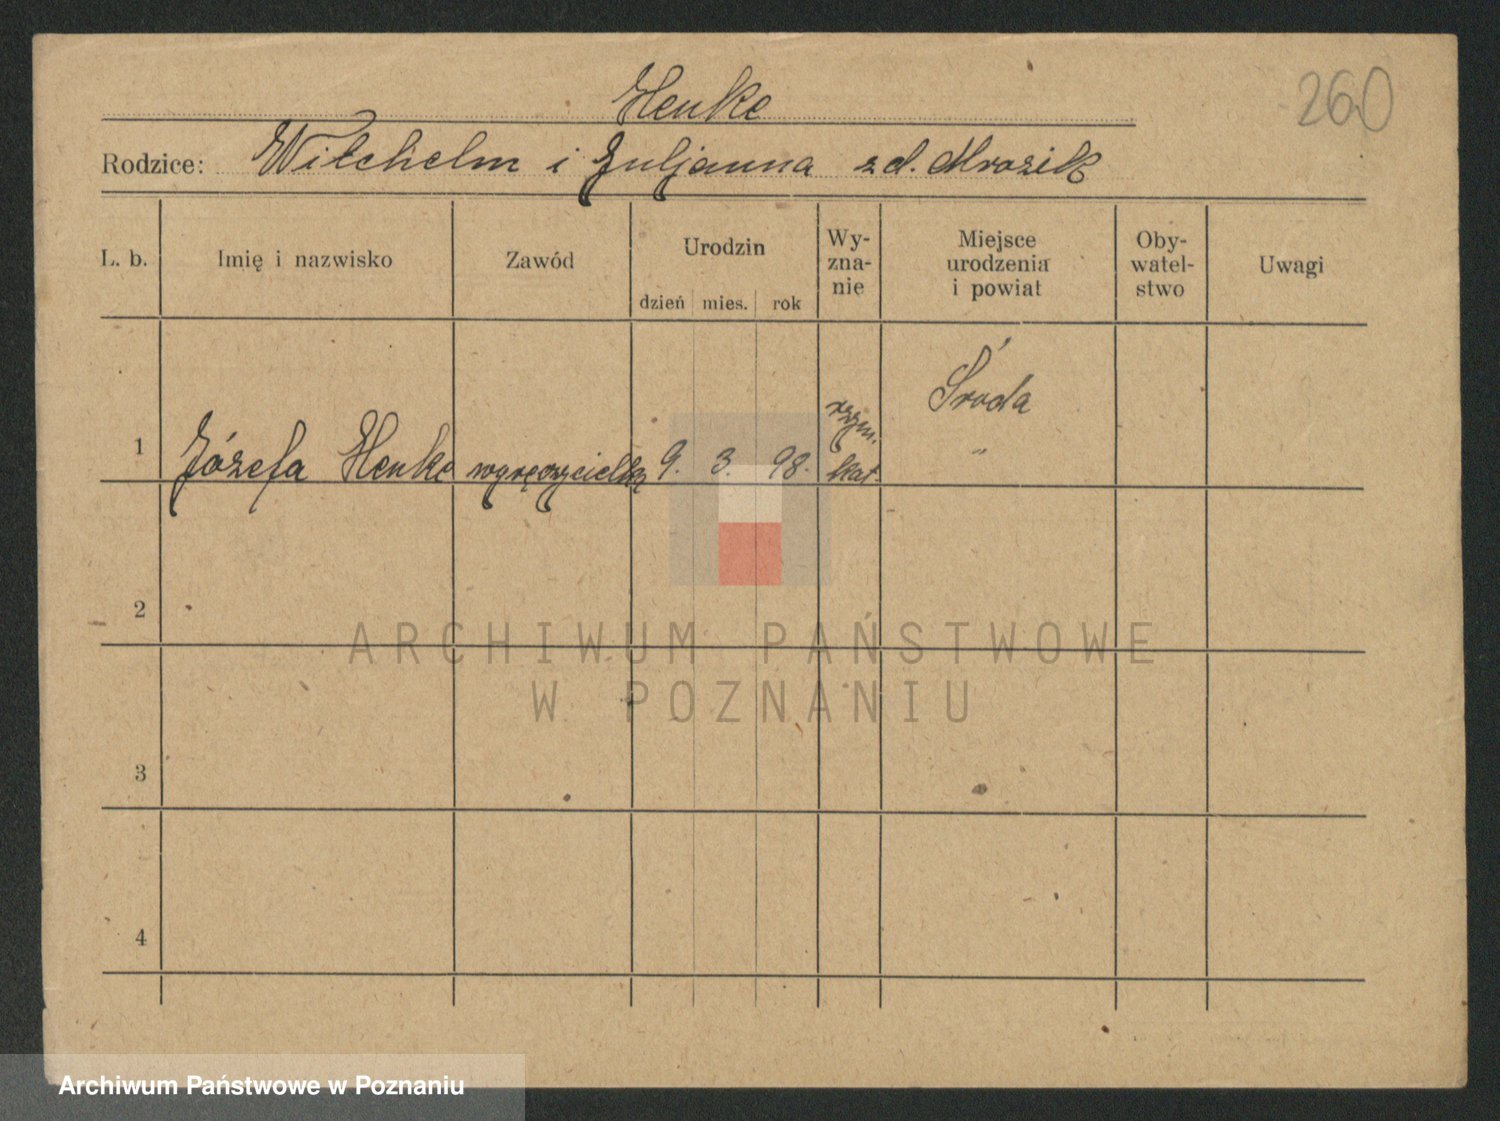 Henke
260
Rodzice: Wilhelm i Juljanna zd. Mrozik
L. b. Imię i nazwisko Zawód Urodzin dzień mies. rok Wy-zna-nie Miejsce urodzenia i powiat Oby-watel-stwo Uwagi
1 Józefa Henke 9. 3. 98. rzym. kat. Środa "
2
ARCHIWUM PAŃSTWOWE
W POZNANIU
3
4
Archiwum Państwowe w Poznaniu